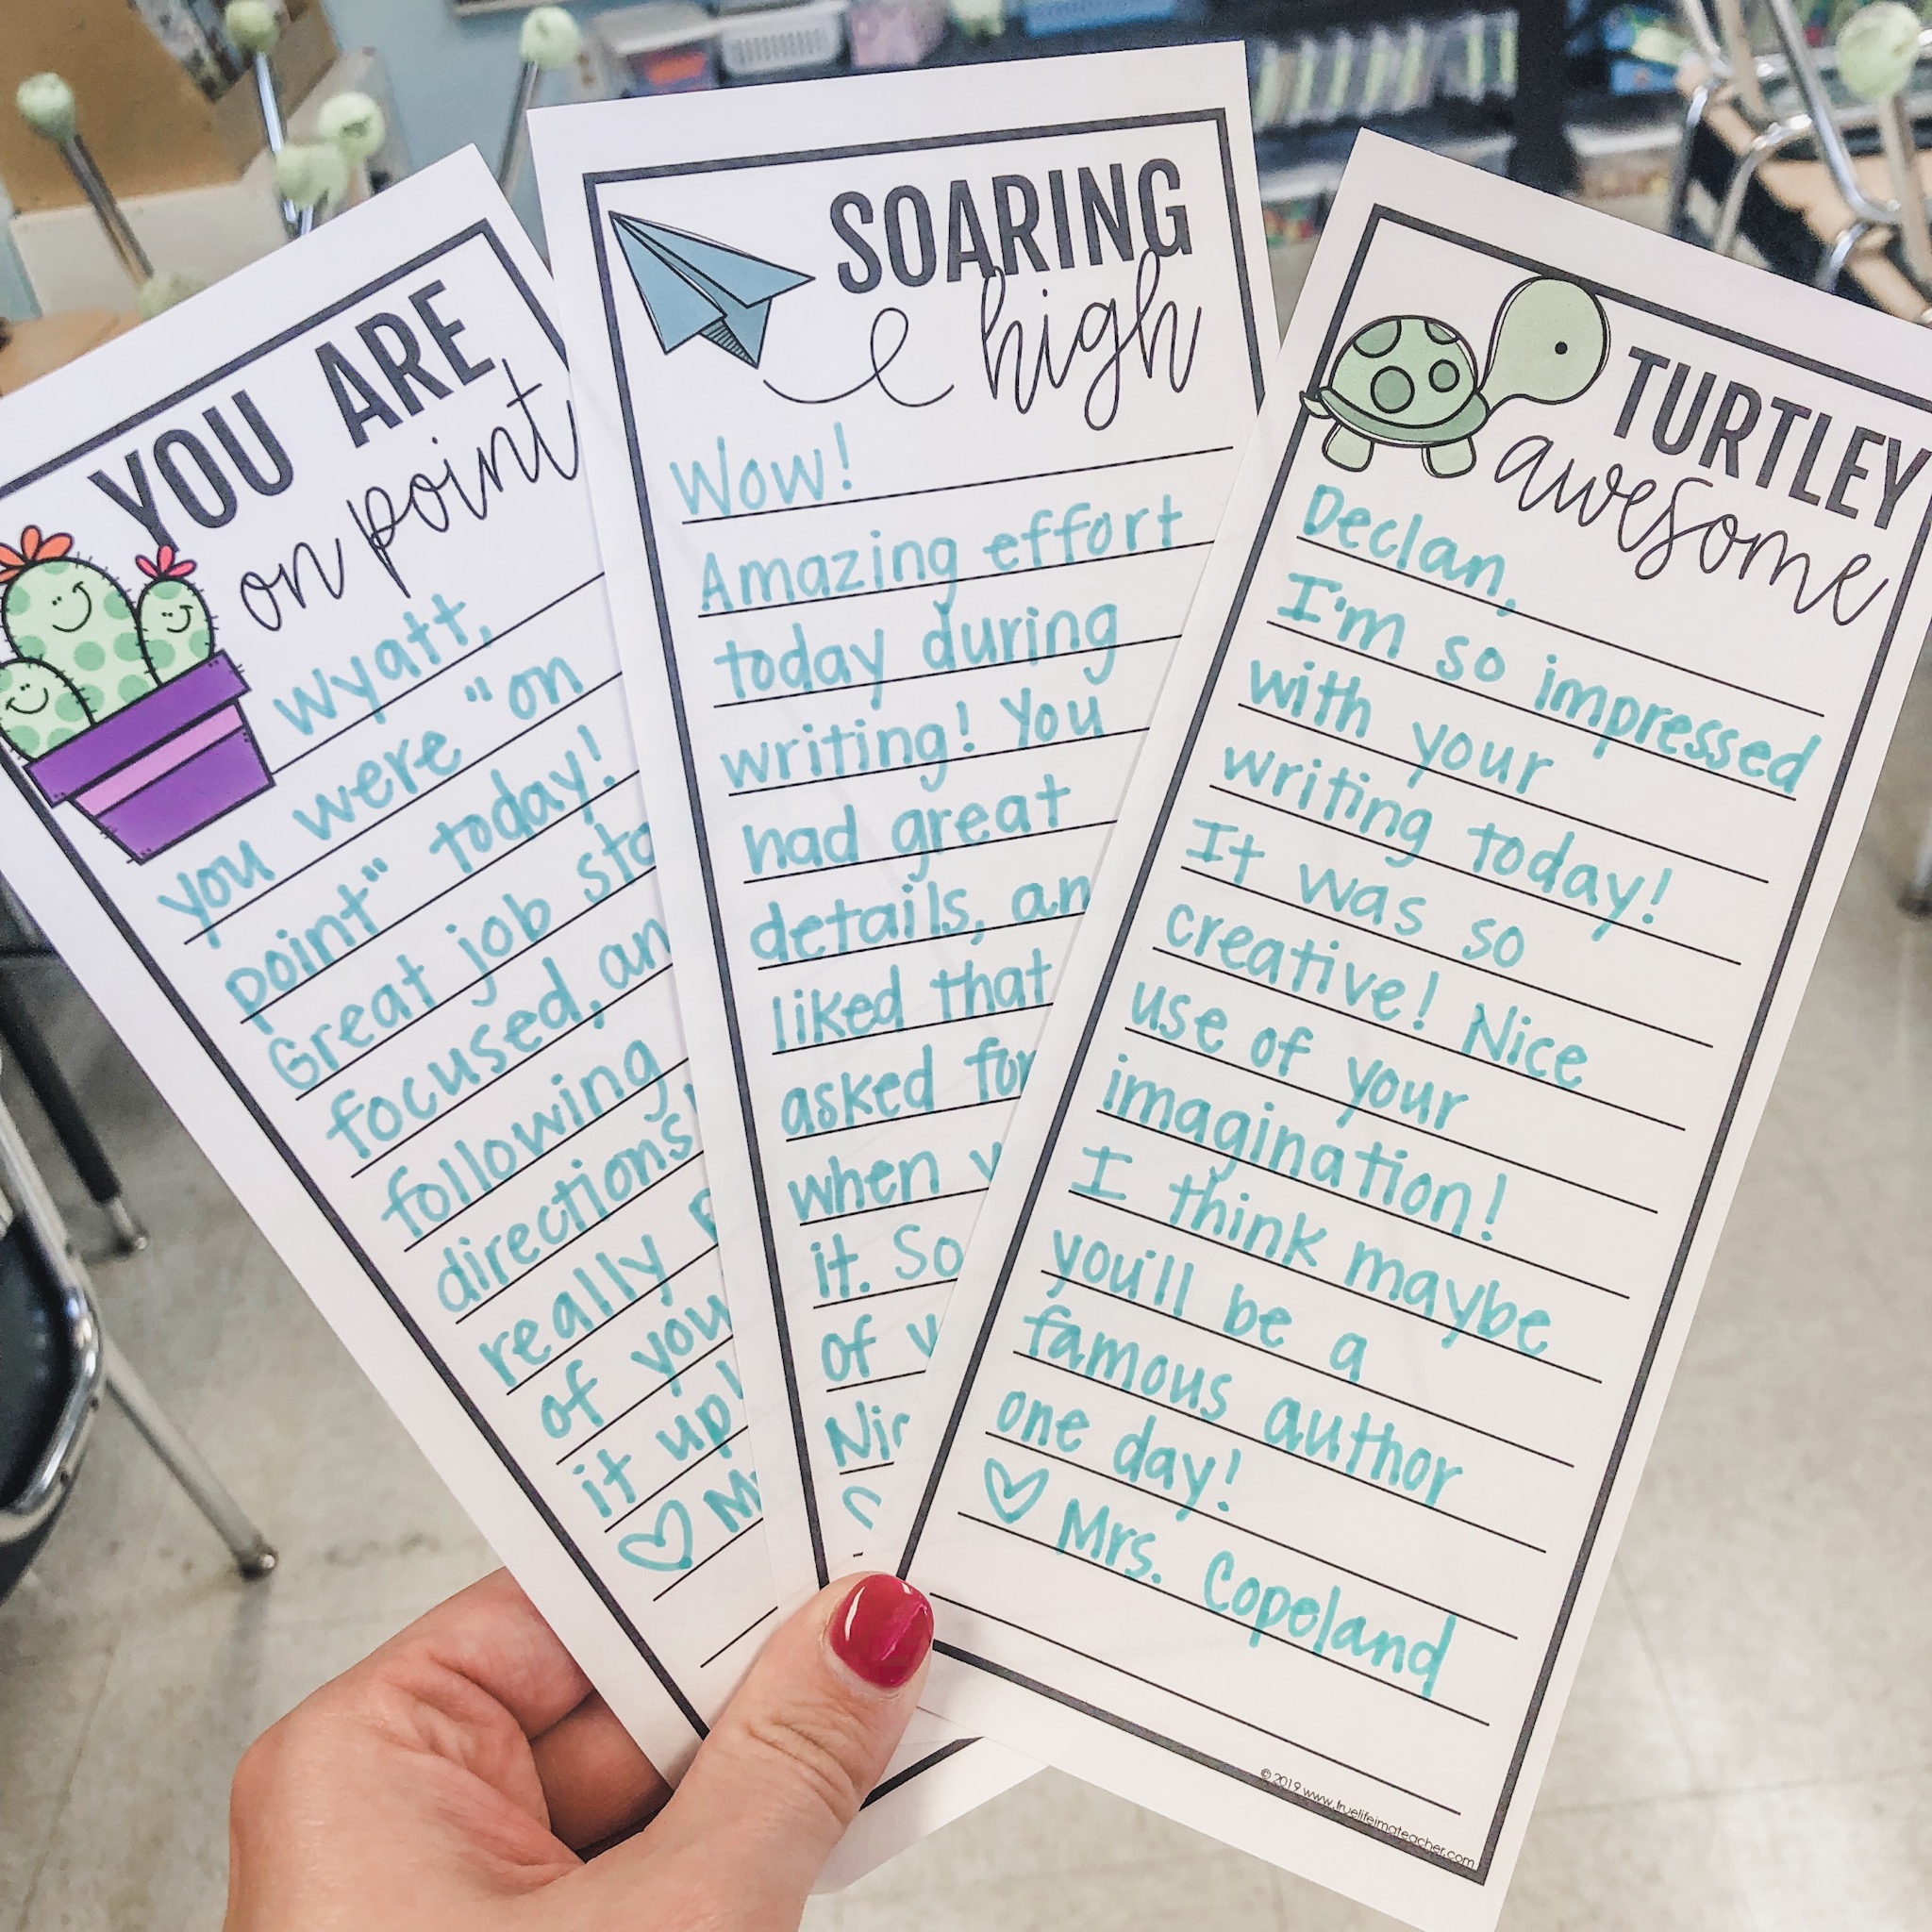 YOU ARE
on point
Wyatt,
you were "on
point" today!
Great job
focused,
following
directions,
really
of
it up!
SOARING
high
Wow!
Amazing effort
today during
writing! You
had great
details,
liked that
asked for
when
it. So
of
TURTLEY
awesome
Declan,
I'm so impressed
with your
writing today!
It was so
creative! Nice
use of your
imagination!
I think maybe
you'll be a
famous author
one day!
♡ Mrs. Copeland
© 2019 www.truelifeimateacher.com